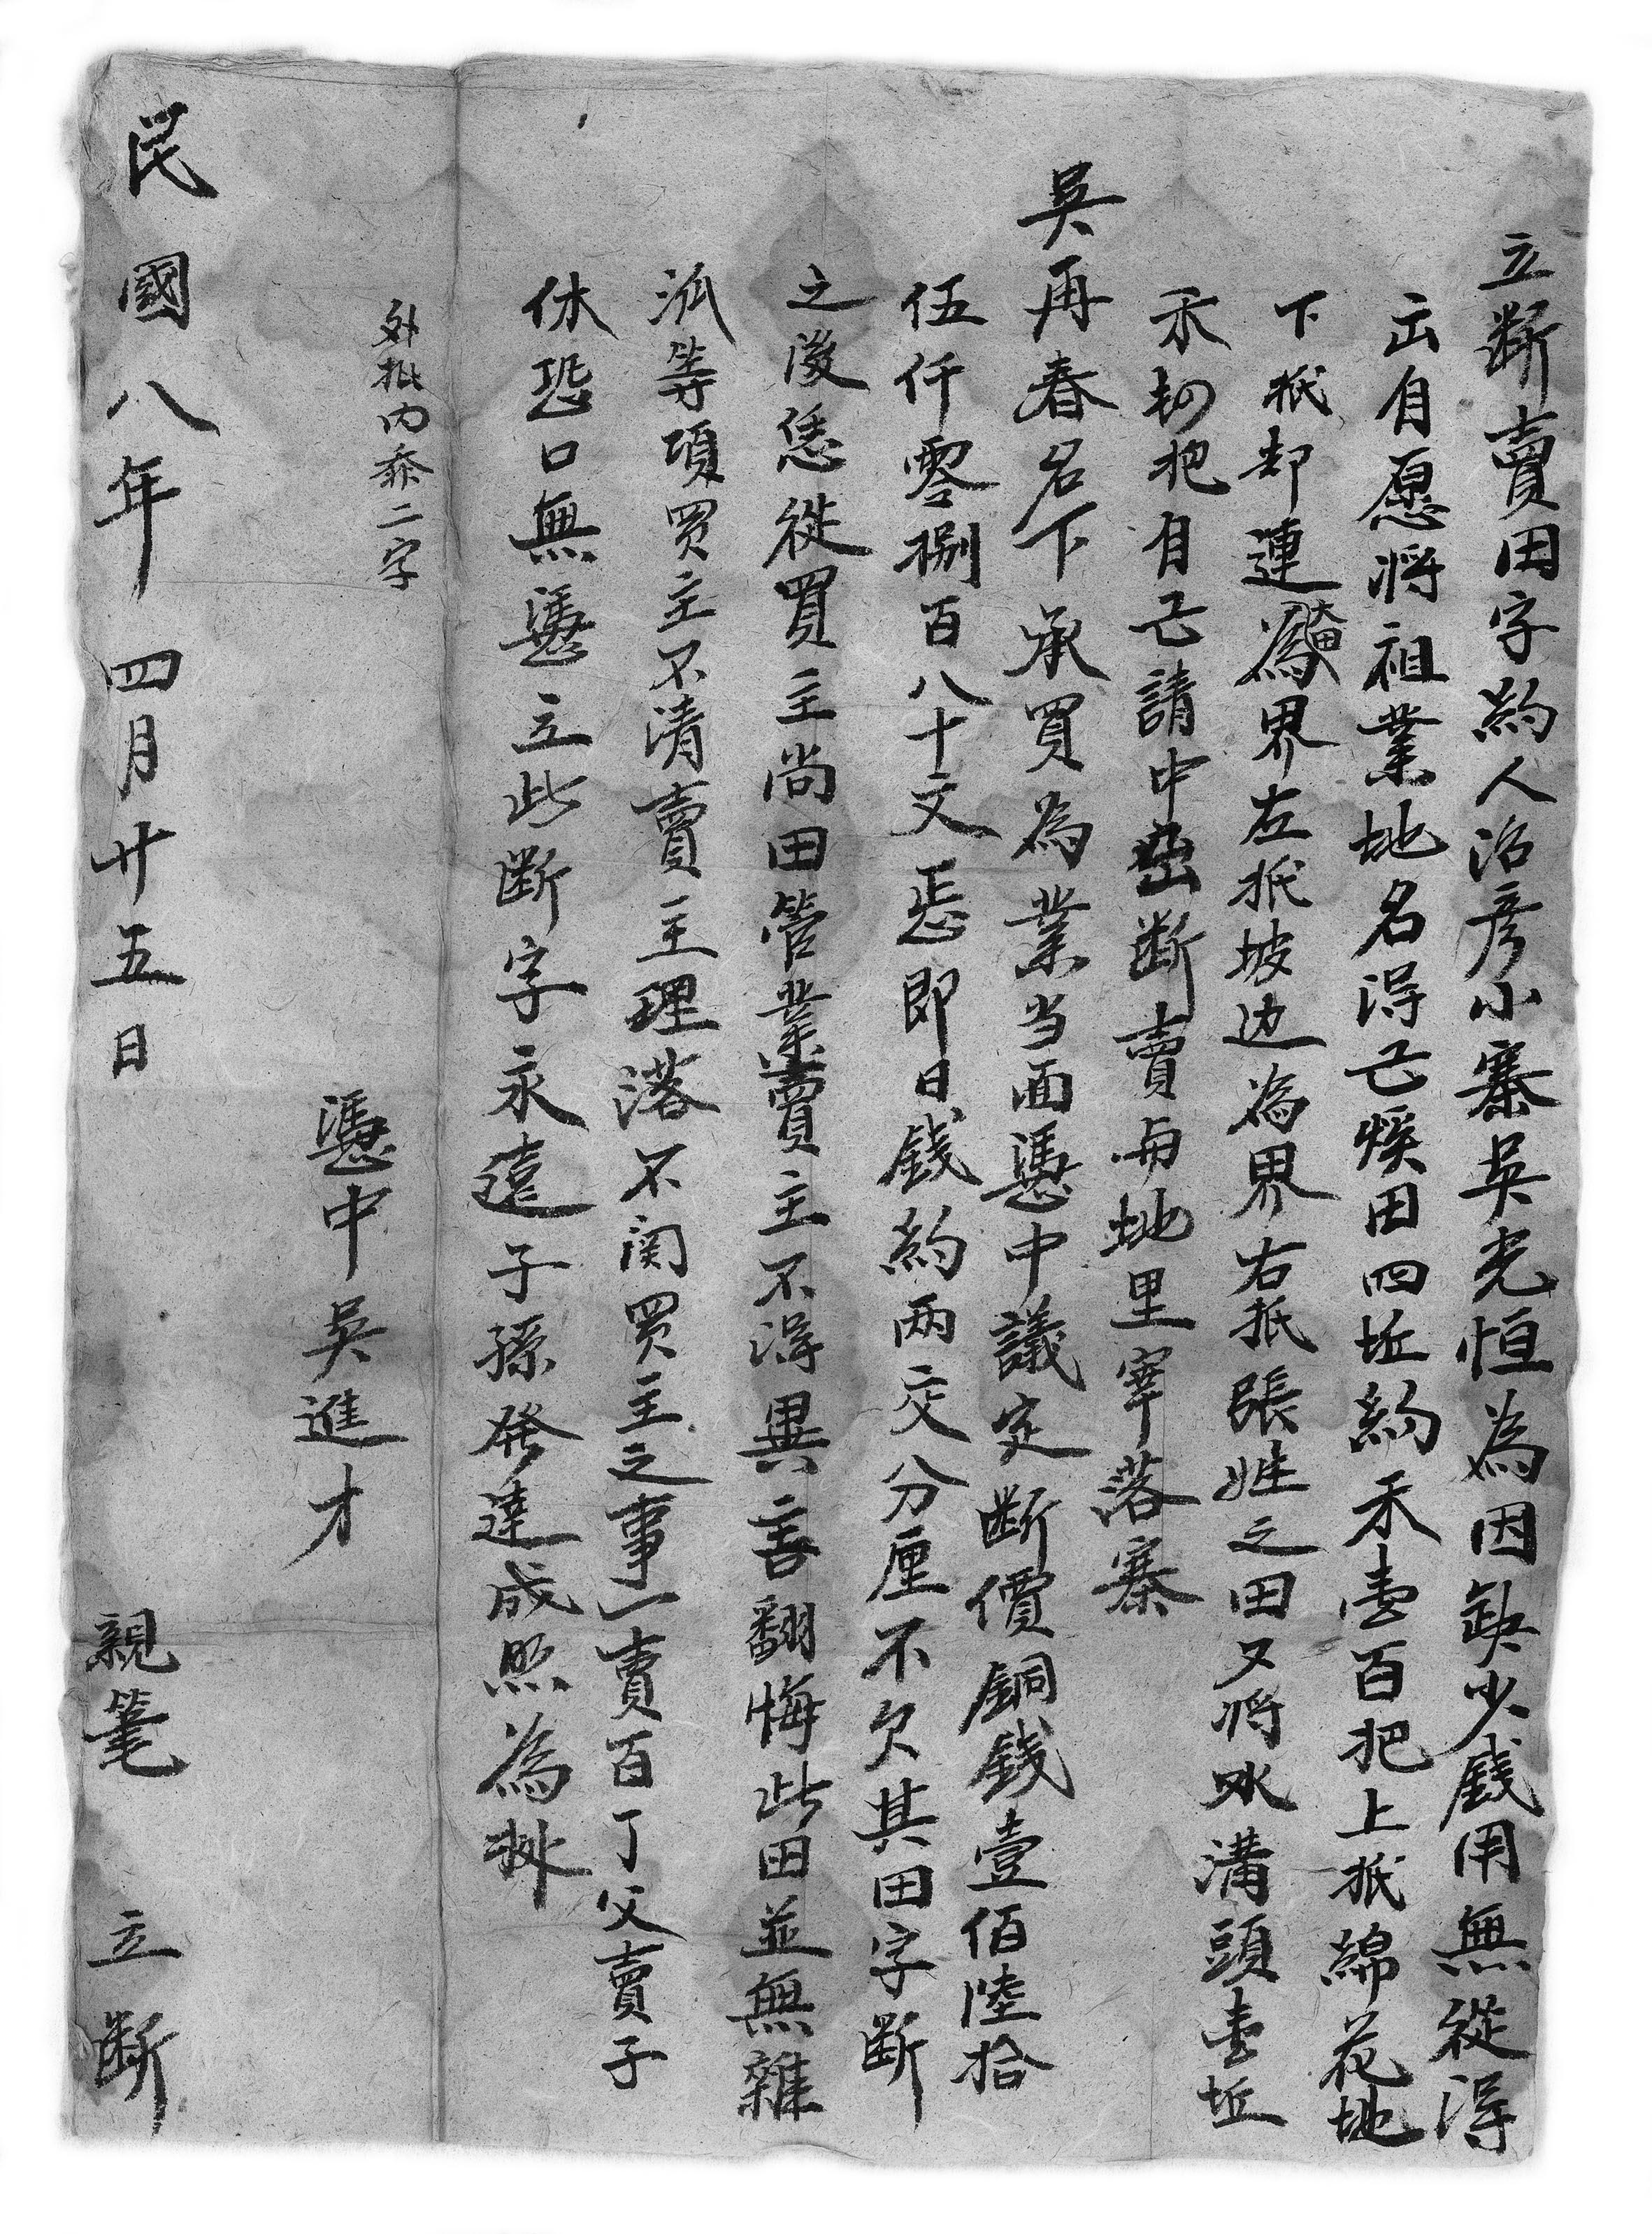 立斷賣田字約人治彦小寨吳光恒為因缺少錢用無從得
出自愿將祖業地名得亡悮田四坵約禾壹百把上抵綿花地
下抵却連為大田界左抵坡边為界右抵張姓之田又將冰溝頭壹坵
禾把自己請中出斷賣与地里宰落寨
吳再春名下承買為業当面憑中議定斷價銅錢壹佰陸拾
伍仟零捌百八十文恁即日錢約兩交分厘不欠其田字斷
之後恁從買主尚田管業賣主不得異言翻悔此田並無雜
派等項買主不清賣主理落不関買主之事一賣百了父賣子
休恐口無憑立此斷字永遠子孫発達成照為挑
外批内添二字
憑中吳進才
民國八年四月廿五日 親筆 立斷